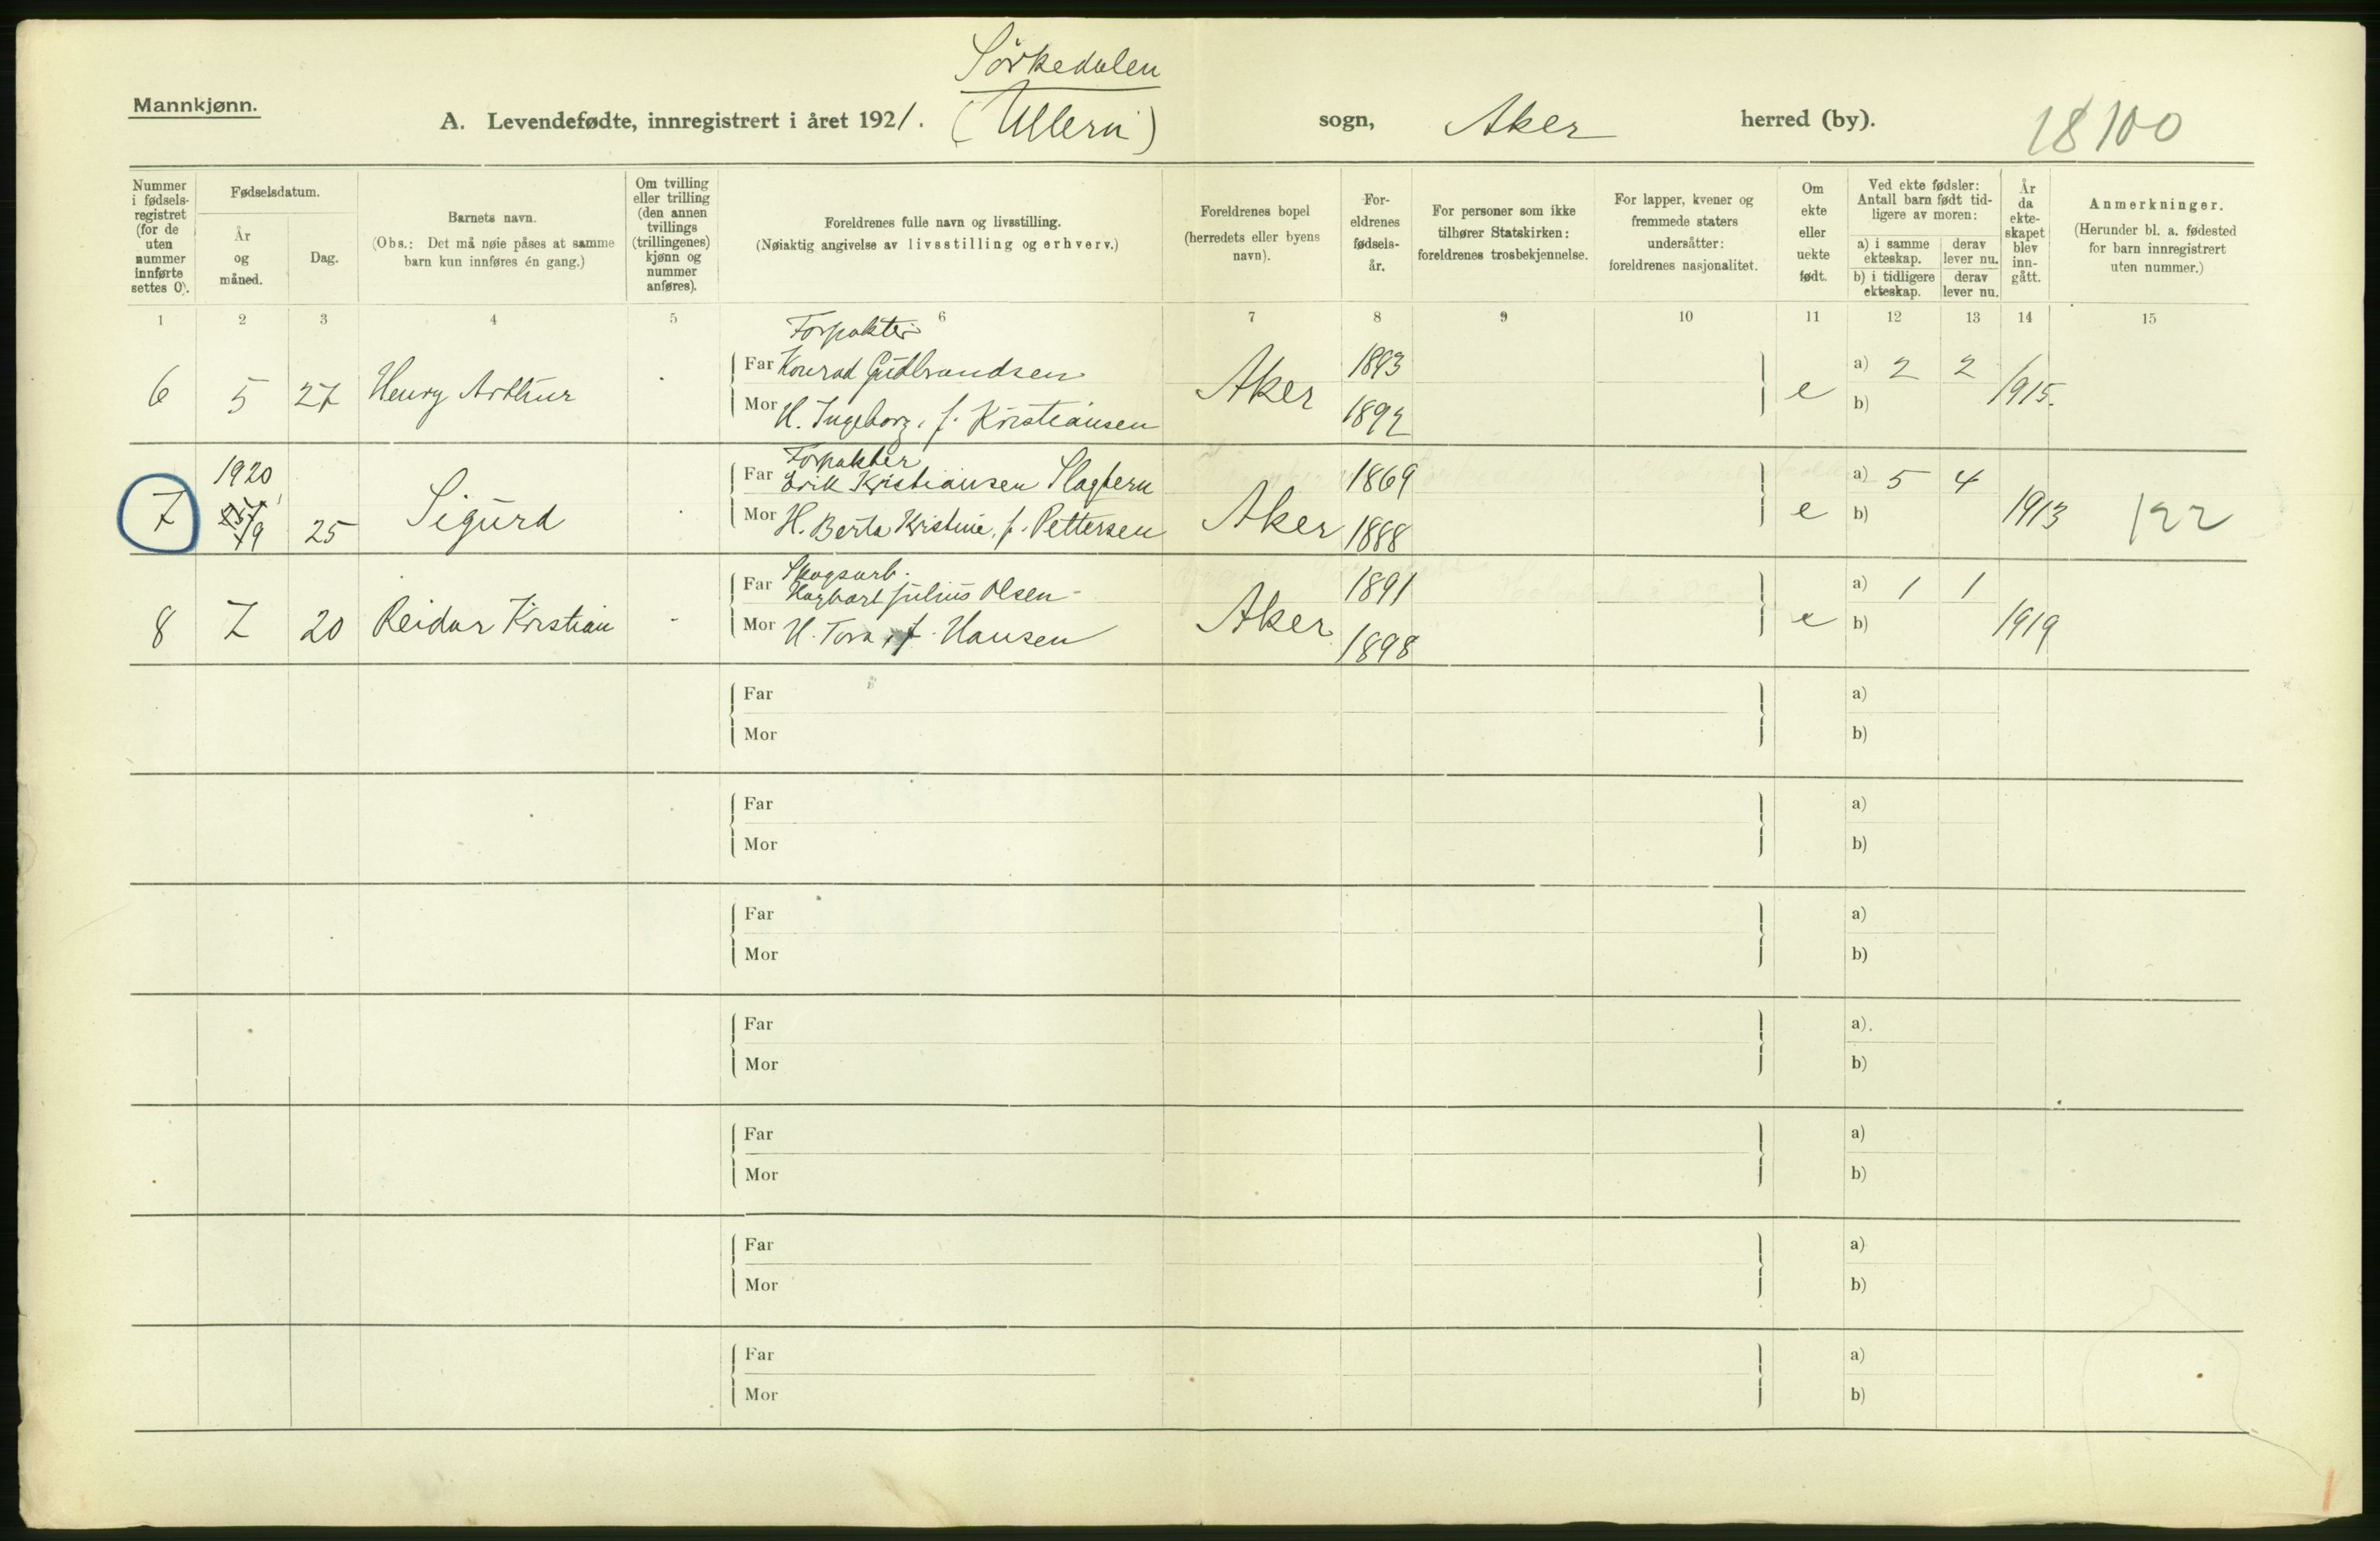 Sörkedalen
Mannkjønn.
A. Levendefødte, innregistrert i året 1921. (Ullern) sogn, Aker herred (by).
18100
Nummer i fødsels-registret (for de uten nummer innførte settes 0).
Fødselsdatum.
År og måned.
Dag.
Barnets navn.
(Obs.: Det må nøie påses at samme barn kun innføres én gang.)
Om tvilling eller trilling (den annen tvillings (trillingenes) kjønn og nummer anføres).
Foreldrenes fulle navn og livsstilling.
(Nøiaktig angivelse av livsstilling og erhverv.)
Foreldrenes bopel (herredets eller byens navn).
For-eldrenes fødsels-år.
For personer som ikke tilhører Statskirken: foreldrenes trosbekjennelse.
For lapper, kvener og fremmede staters undersåtter: foreldrenes nasjonalitet.
Om ekte eller uekte født.
Ved ekte fødsler: Antall barn født tid-ligere av moren:
a) i samme ekteskap.
derav lever nu.
b) i tidligere ekteskap.
derav lever nu.
År da ekte-skapet blev inn-gått.
Anmerkninger.
(Herunder bl. a. fødested for barn innregistrert uten nummer.)
1 2 3 4 5 6 7 8 9 10 11 12 13 14 15
Forpakter
6 5 27 Henry Arthur Far Konrad Gudbrandsen Aker 1893 e a) 2 2 1915.
Mor H. Ingeborg, f. Kristiansen 1892 b)
Forpakter
7 1920 9 25 Sigurd Far Erik Kristiansen Slagtern Aker 1869 e a) 5 4 1913 122
Mor H. Berta Kristine, f. Pettersen 1888 b)
Skogsarb.
8 7 20 Reidar Kristian Far Hagbart Julius Olsen Aker 1891 e a) 1 1 1919
Mor H. Tora, f. Hansen 1898 b)
Far a)
Mor b)
Far a)
Mor b)
Far a)
Mor b)
Far a)
Mor b)
Far a)
Mor b)
Far a)
Mor b)
Far a)
Mor b)